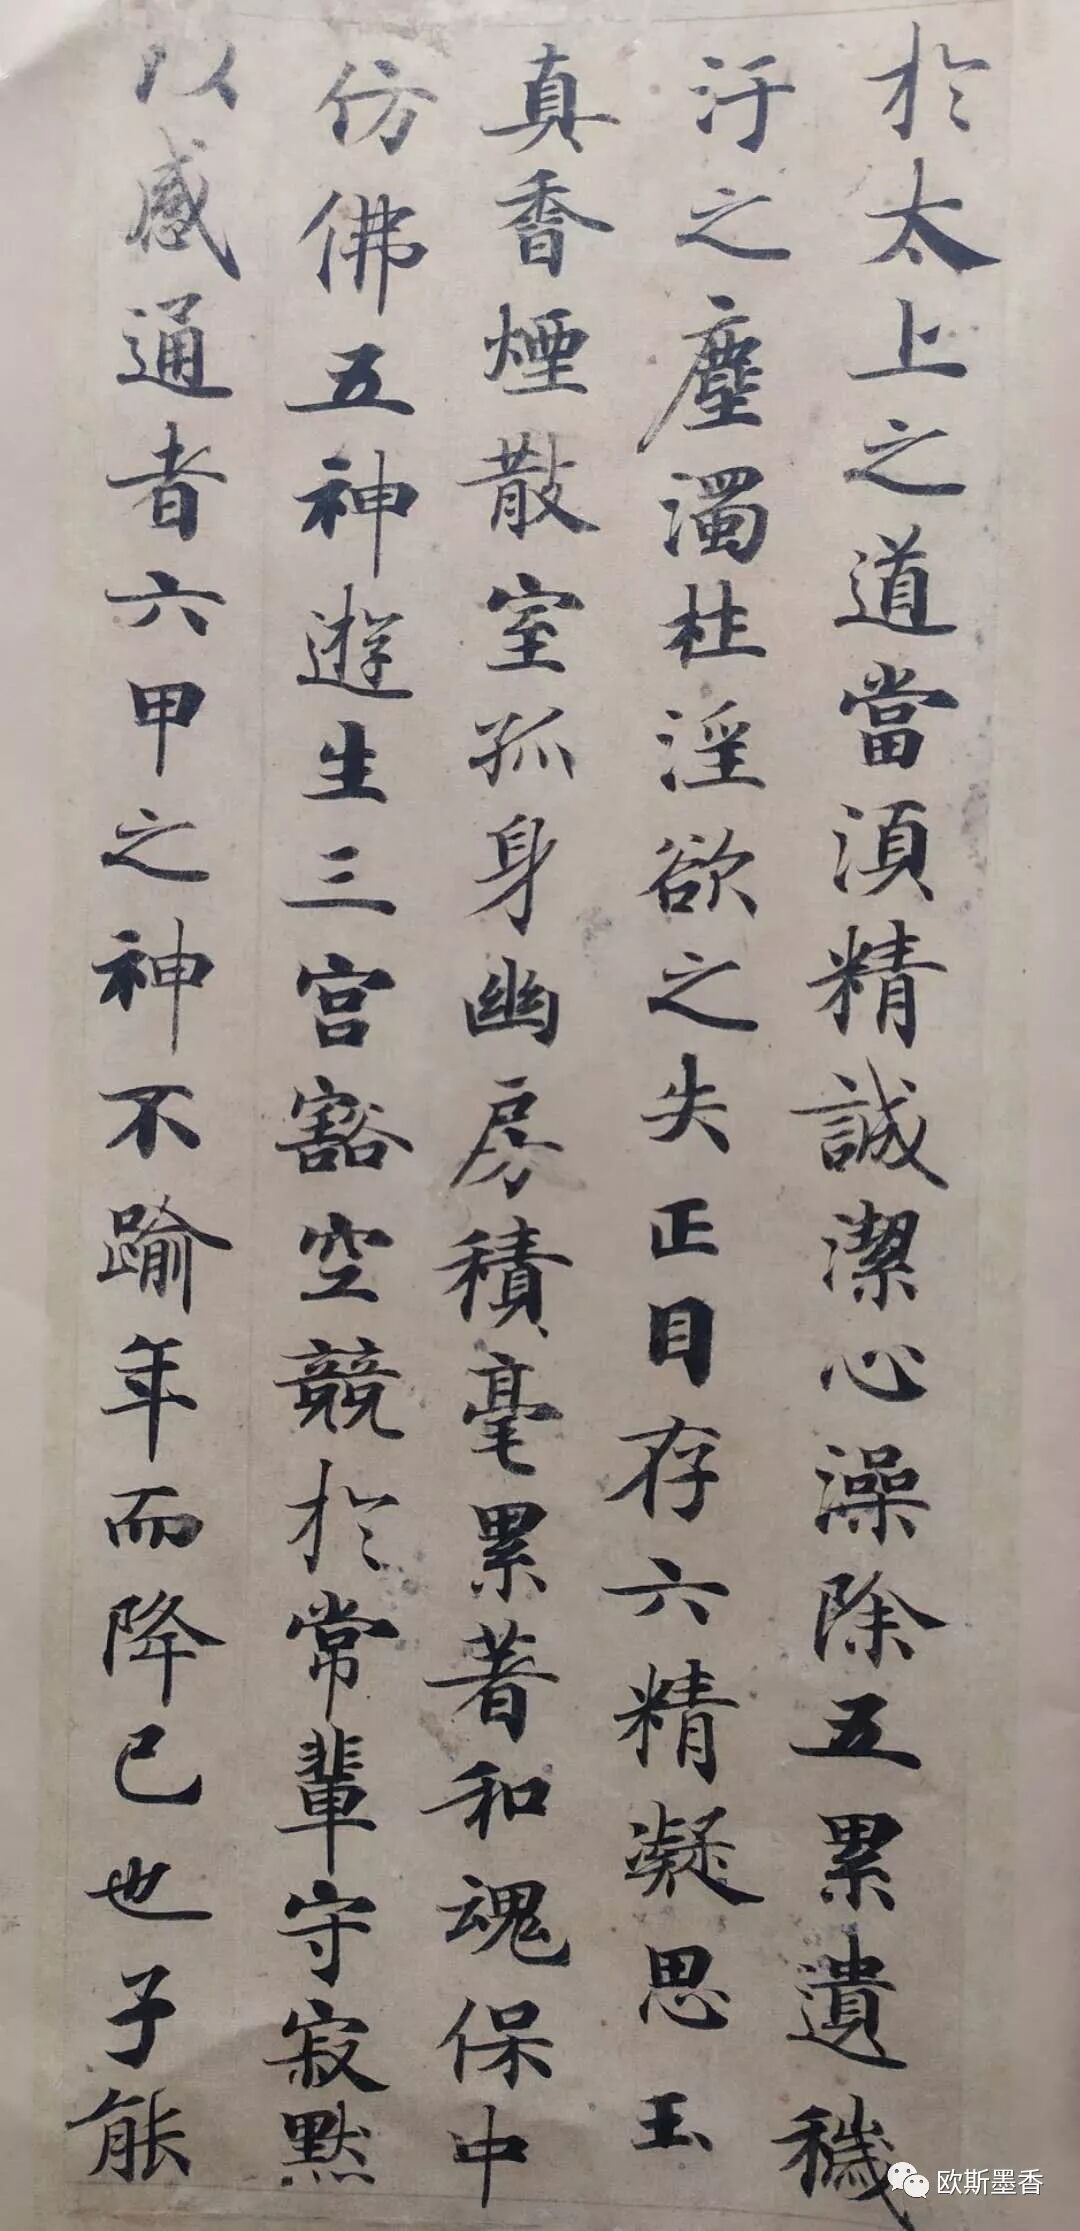 於太上之道當須精誠潔心澡除五累遺穢
汙之塵濁杜淫欲之失正目存六精凝思玉
真香煙散室孤身幽房積毫累著和魂保中
仿佛五神遊生三宮豁空競於常輩守寂默
以感通者六甲之神不踰年而降已也子能
欧斯墨香